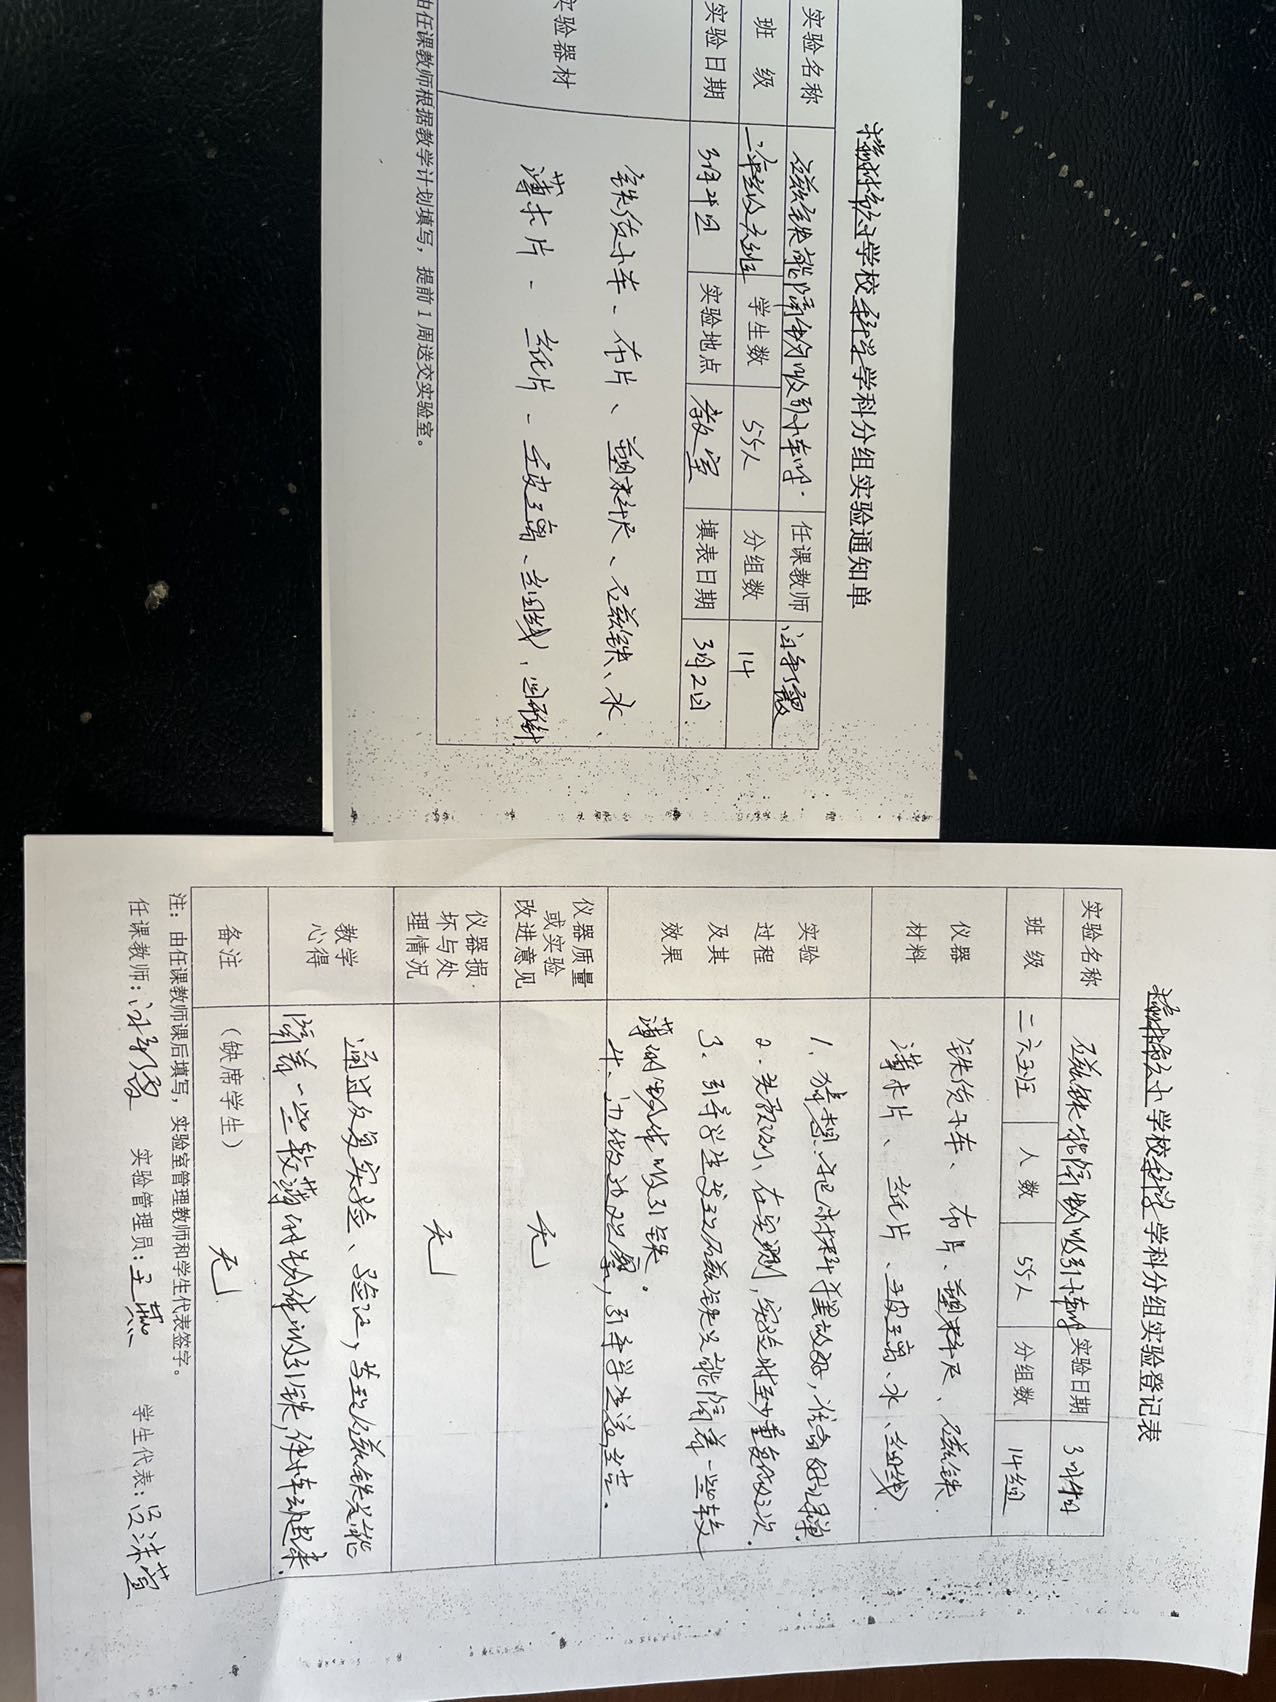 小学校科学学科分组实验通知单
实验名称 磁铁能隔物吸引小车吗 任课教师
班 级 二年级六班 学生数 55人 分组数 14
实验日期 实验地点 教室 填表日期 3月2日
实验器材
铁货小车、布片、塑料尺、磁铁、水、
薄木片、纸片、玉皮璃、细线、回形针
由任课教师根据教学计划填写，提前1周送交实验室。
小学校科学学科分组实验登记表
实验名称 磁铁能隔物吸引小车吗 实验日期
班 级 二六班 人 数 55人 分组数 14组
仪器材料
铁货小车、布片、塑料尺、磁铁
薄木片、纸片、玻璃、水、细线
实验过程及其效果
1、猜想：把材料
2、先预测、在实测，实验时至少重复做三次。
3、引导学生发现磁铁只能隔着一些较
薄的物体吸引铁。
4、边做边观察，引导学生总结。
仪器质量或实验改进意见 无
仪器损坏与处理情况 无
教学心得
通过反复实验、验证，发现磁铁只能
隔着一些较薄的物体吸引铁，使小车动起来
备注 （缺席学生） 无
注：由任课教师课后填写，实验室管理教师和学生代表签字。
任课教师： 实验管理员：王燕 学生代表：